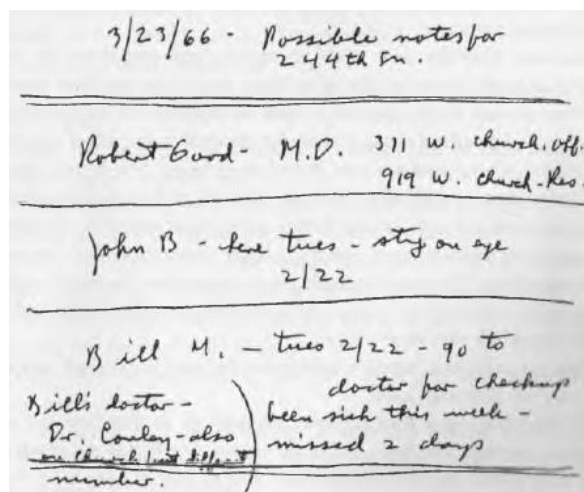 3/23/66 - Possible notes for
244th Sn.
Robert Good - M.D. 311 W. Church. Off.
919 W. Church - Res.
John B - here tues - sty on eye
2/22
Bill M. - tues 2/22 - go to
doctor for checkup
been sick this week -
missed 2 days
Bill's doctor -
Dr. Conley - also
on Church but different
number.